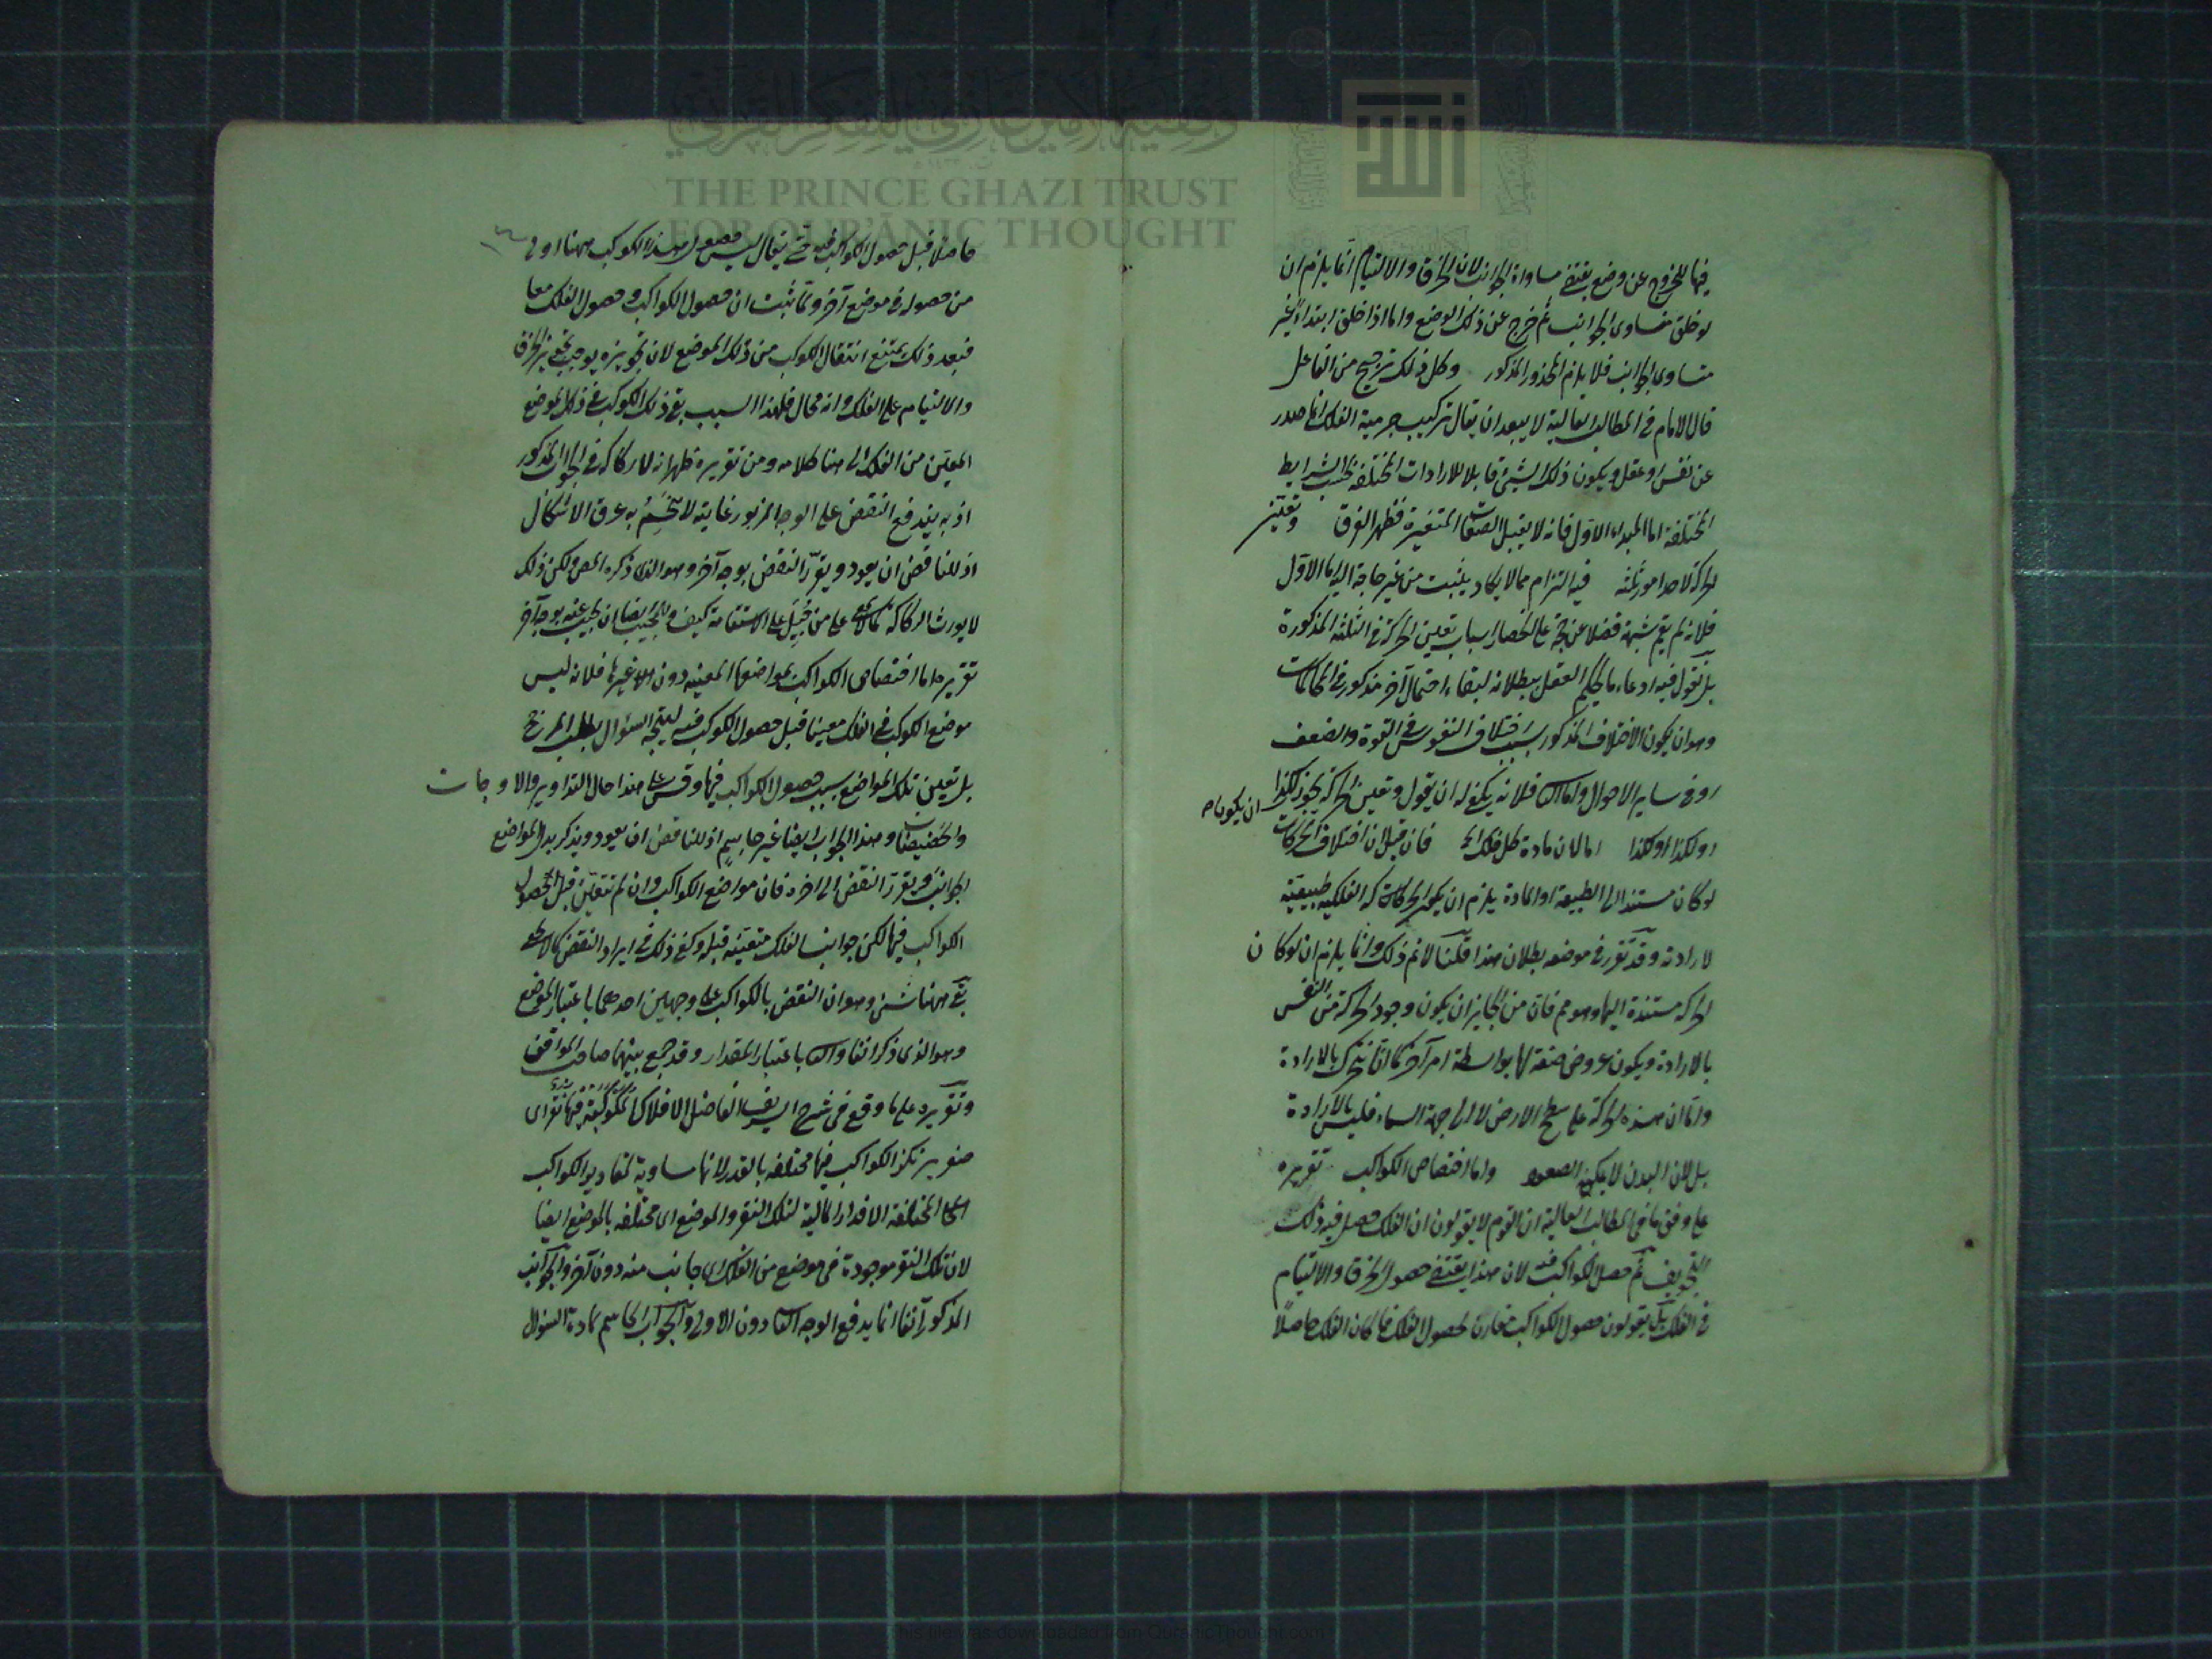 وقفية الأمير غازي للفكر القرآني
THE PRINCE GHAZI TRUST
FOR QUR'ĀNIC THOUGHT
فيها للخروج عن وضع يقتضى مساواة الجوانب لان الخرق والالتيام انما يلزم ان
لو خلق متساوى الجوانب ثم خرج عن ذلك الوضع واما اذا خلق ابتداء غير
متساوى الجوانب فلا يلزم المحذور المذكور وكل ذلك ترجيح من الفاعل
قال الامام فى المطالب العالية لا يبعد ان يقال تركيب جرمية الفلك انما صدر
عن نفس او عقل ويكون ذلك الشيئ قابلا للارادات المختلفة بحسب الشرايط
المختلفة اما المبداء الاول فانه لا يقبل الصفات المتغيرة فظهر الفرق وتعين
الحركة لاحد امور ثلثة فيه التزام مما لا يكاد يثبت من غير حاجة اليه اما الاول
فلانه لم يقم شبهة فضلا عن حجة على انحصار اسباب تعين الحركة فى الثلثة المذكورة
بل نقول فيه ادعاء ما يحكم العقل ببطلانه لبقاء احتمال آخر مذكور فى المحاكمات
وهو ان يكون الاختلاف المذكور بسبب اختلاف النفوس فى القوة والضعف
او فى ساير الاحوال واما الثانى فلانه يكفى له ان يقول وتعين الحركة يجوز
ان يكون
لكذا او لكذا او لكذا اما لان مادة كل فلك الخ فان قيل ان اختلاف الحركات
لو كان مستندا الى الطبيعة او المادة يلزم ان يكون الحركات الفلكية طبيعية
لا ارادة وقد تقرر فى موضعه بطلان هذا قلنا لانم ذلك وانما يلزم ان لو كان
الحركة مستندة اليها وهو مم فان من الجايز ان يكون وجود الحركة من النفس
بالارادة ويكون عروض صفة لها بواسطة امر آخر كما انا نتحرك بالارادة
واما ان هذه الحركة على سطح الارض لا الى جهة السماء فليس بالارادة
بل لان البدن لا يمكنه الصعود واما اختصاص الكواكب تقريره
على وفق ما فى المطالب العالية ان القوم لا يقولون ان الفلك حصل فيه ذلك
التجويف ثم حصل الكواكب فيه لان هذا يقتضى حصول الخرق والالتيام
فى الفلك بل يقولون حصول الكواكب مقارن لحصول الفلك فما كان الفلك حاصلا
حاصلا قبل حصول الكواكب فيه حتى يقال ليس حصول هذا الكوكب ههنا اولى
من حصوله فى موضع آخر ولما ثبت ان حصول الكواكب وحصول الفلك معا
فبعد ذلك يمتنع انتقال الكوكب من ذلك الموضع لان تجويزه يوجب تجويز الخرق
والالتيام على الفلك وانه محال فلهذا السبب بقى ذلك الكوكب فى ذلك الموضع
المعين من الفلك الى هنا كلامه ومن تقريره ظهر انه لا ركاكة فى الجواب المذكور
اذ به يندفع النقض على الوجه المزبور غايته لا تحسم به عرق الاشكال
اذ للناقض ان يعود ويقرر النقض بوجه آخر وهو الذى ذكره المص ولكن ذلك
لا يورث الركاكة كما لا يخفى على من جبل على الاستقامة كيف وللمجيب ايضا ان يجيب عنه بوجه آخر
تقريره اما اختصاص الكواكب بمواضعها المعينة دون غيرها فلانه ليس
موضع الكوكب فى الفلك معينا قبل حصول الكوكب فيه ليتجه السؤال بطلب المرجح
بل تعين تلك المواضع بسبب حصول الكواكب فيها وقس على هذا حال التداوير والاوجات
والحضيضات وهذا الجواب ايضا غير حاسم اذ للناقض ان يعود ويذكر بدل المواضع
الجوانب ويقرر النقض الى اخره فان مواضع الكواكب وان لم تتعين قبل حصول
الكواكب فيها لكن جوانب الفلك متعينة قبله وكفى ذلك فى ايراد النقض كما لا يخفى
بقى ههنا شئ وهو ان النقض بالكواكب على وجهين احدهما باعتبار الموضع
وهو الذى ذكر انفا والثانى باعتبار المقدار وقد جمع بينهما صاحب المواقف
وتقريره على ما وقع فى شرح الشريف الفاضل الافلاك المكوكبة فيها نقر اى
حفر يرتكز الكواكب فيها مختلفة بالقدر لانها مساوية لمقادير الكواكب
المختلفة الاقدار المالية لتلك النقر والموضع اى مختلفة بالموضع ايضا
لان تلك النقر موجودة فى موضع من الفلك اى جانب منه دون آخر والجواب
المذكور آنفا انما يدفع الوجه الثانى دون الاول والجواب الحاسم لمادة السؤال
This file was downloaded from QuranicThought.com